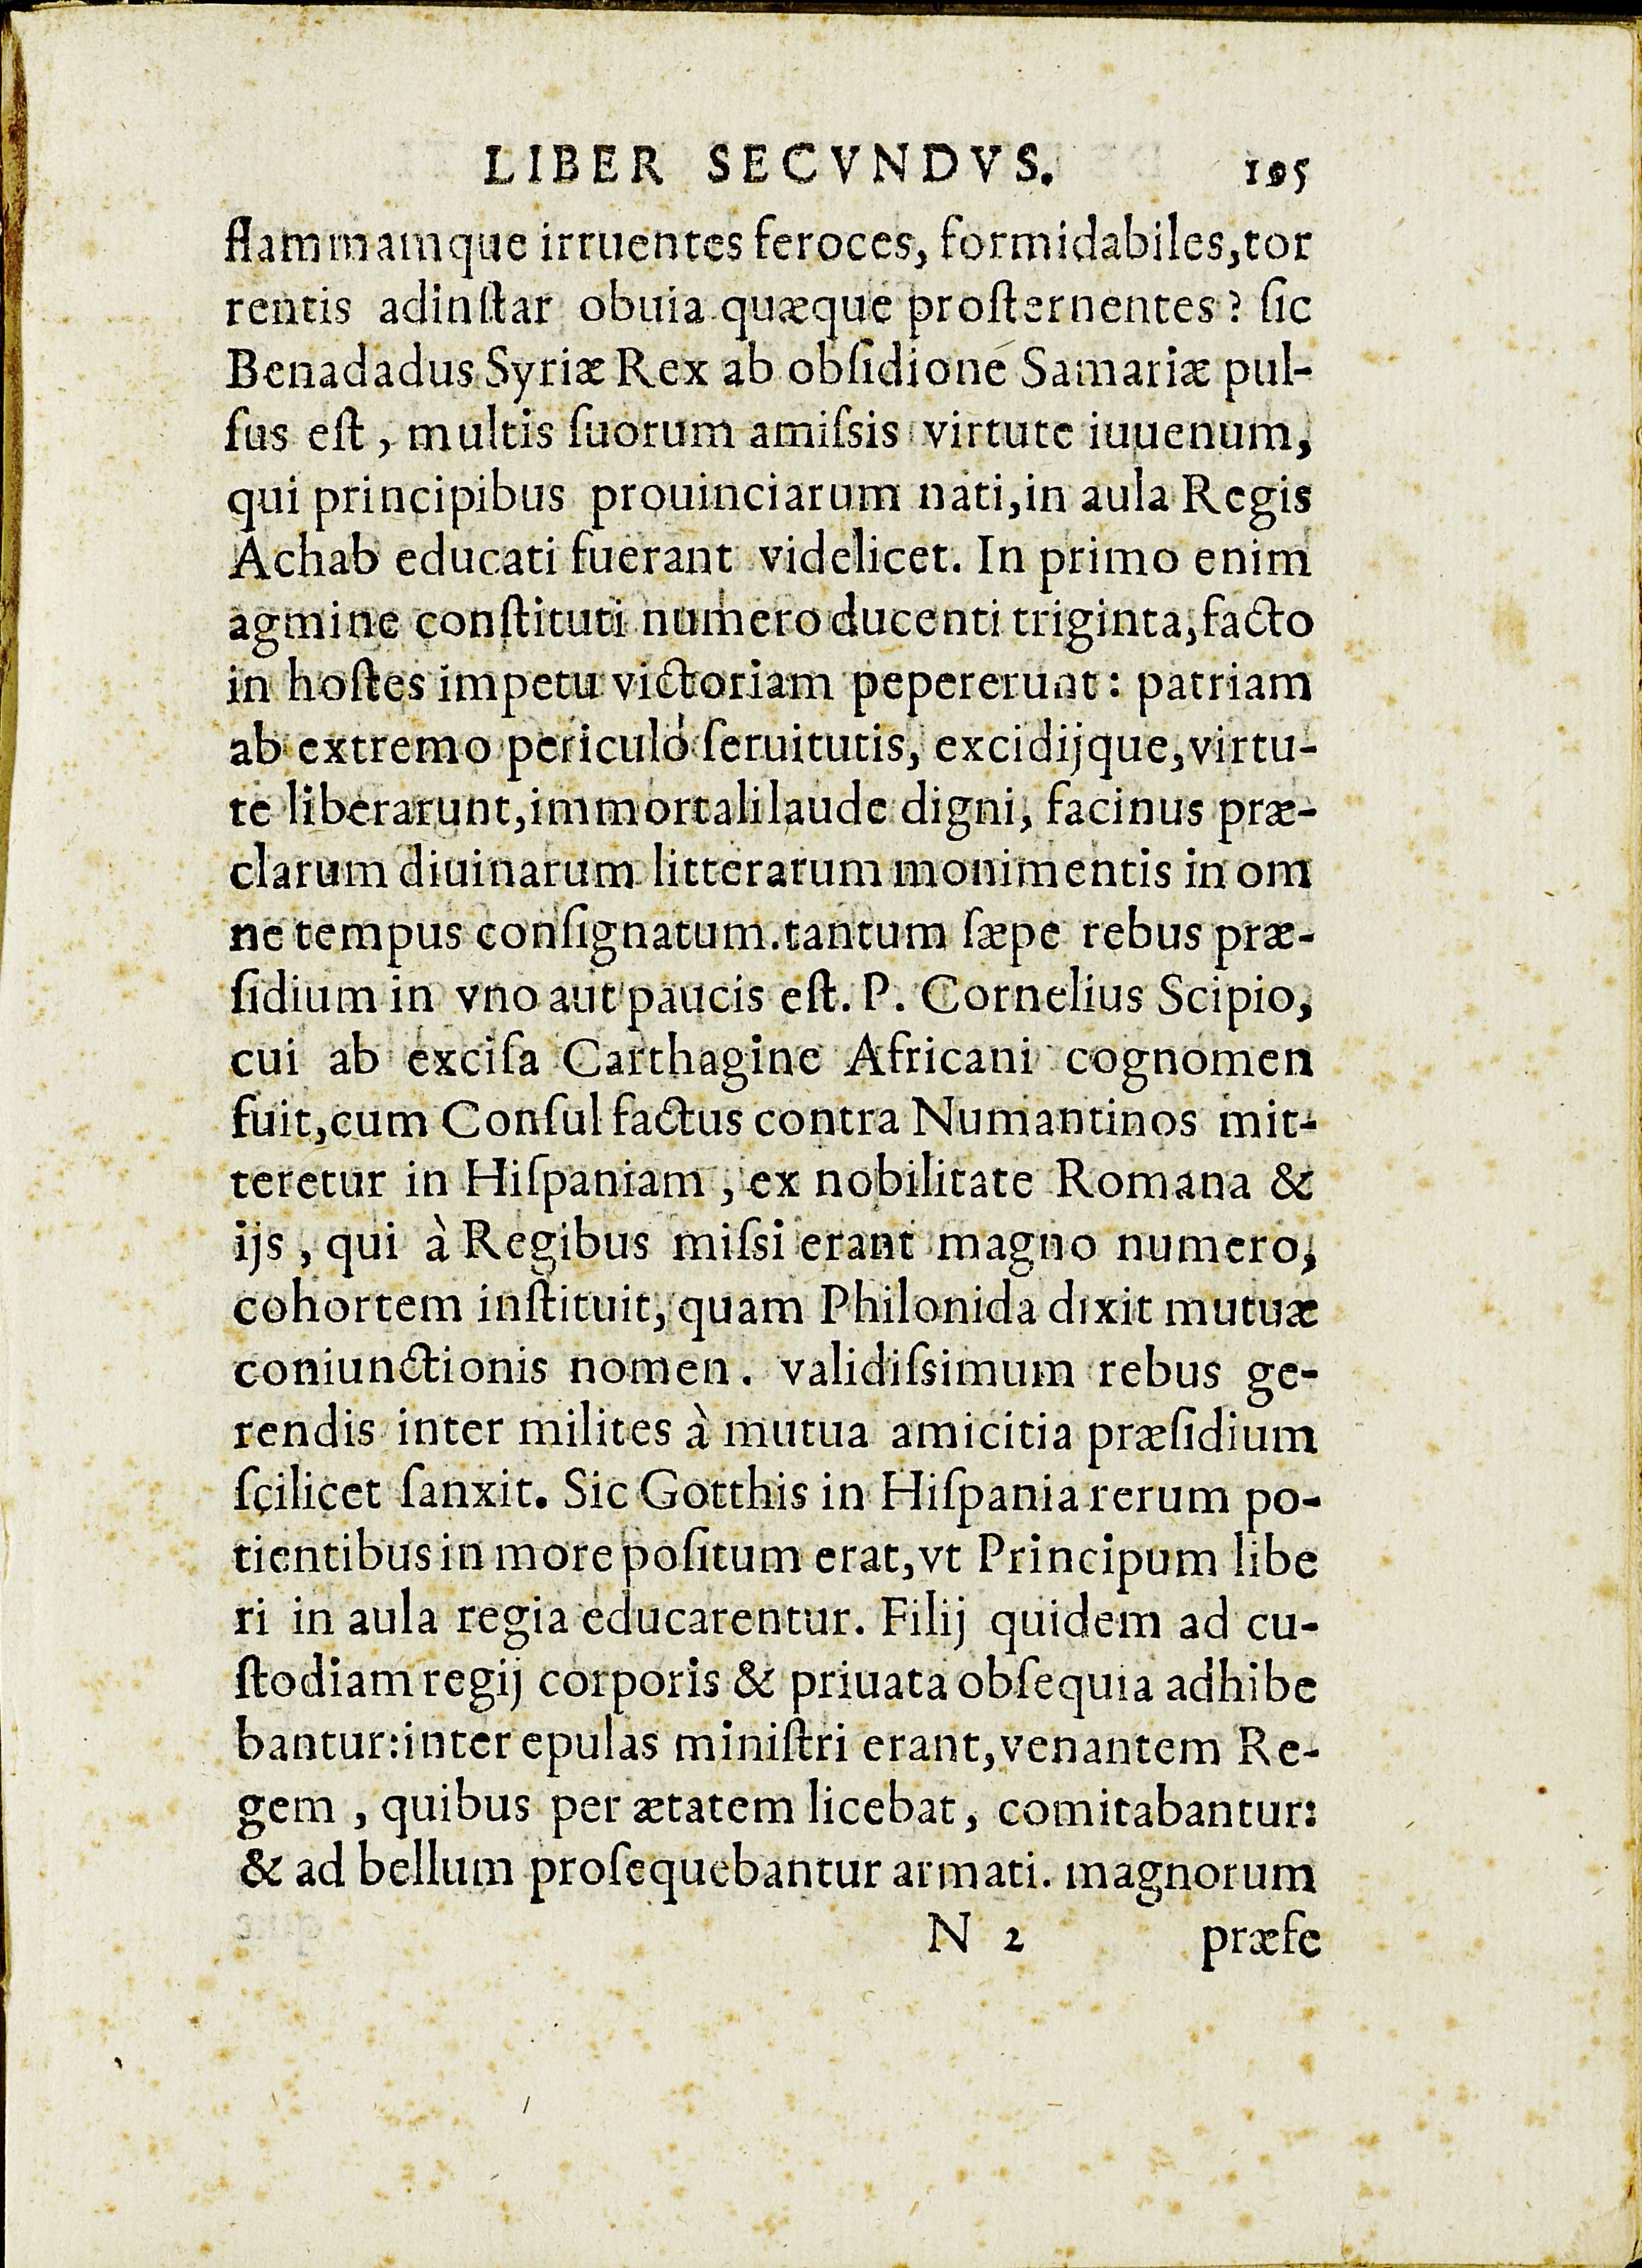 LIBER SECVNDVS. 195
flammamque irruentes feroces, formidabiles, tor
rentis adinſtar obuia quæque proſternentes? ſic
Benadadus Syriæ Rex ab obſidione Samariæ pul-
ſus eſt, multis ſuorum amiſsis virtute iuuenum,
qui principibus prouinciarum nati, in aula Regis
Achab educati fuerant videlicet. In primo enim
agmine conſtituti numero ducenti triginta, facto
in hoſtes impetu victoriam pepererunt: patriam
ab extremo periculo ſeruitutis, excidijque, virtu-
te liberarunt, immortali laude digni, facinus præ-
clarum diuinarum litterarum monimentis in om
ne tempus conſignatum. tantum ſæpe rebus præ-
ſidium in vno aut paucis eſt. P. Cornelius Scipio,
cui ab exciſa Carthagine Africani cognomen
fuit, cum Conſul factus contra Numantinos mit-
teretur in Hiſpaniam, ex nobilitate Romana &
ijs, qui à Regibus miſsi erant magno numero,
cohortem inſtituit, quam Philonida dixit mutuæ
coniunctionis nomen. validiſsimum rebus ge-
rendis inter milites à mutua amicitia præſidium
ſcilicet ſanxit. Sic Gotthis in Hiſpania rerum po-
tientibus in more poſitum erat, vt Principum libe
ri in aula regia educarentur. Filij quidem ad cu-
ſtodiam regij corporis & priuata obſequia adhibe
bantur: inter epulas miniſtri erant, venantem Re-
gem, quibus per ætatem licebat, comitabantur:
& ad bellum proſequebantur armati. magnorum
N 2 præfe